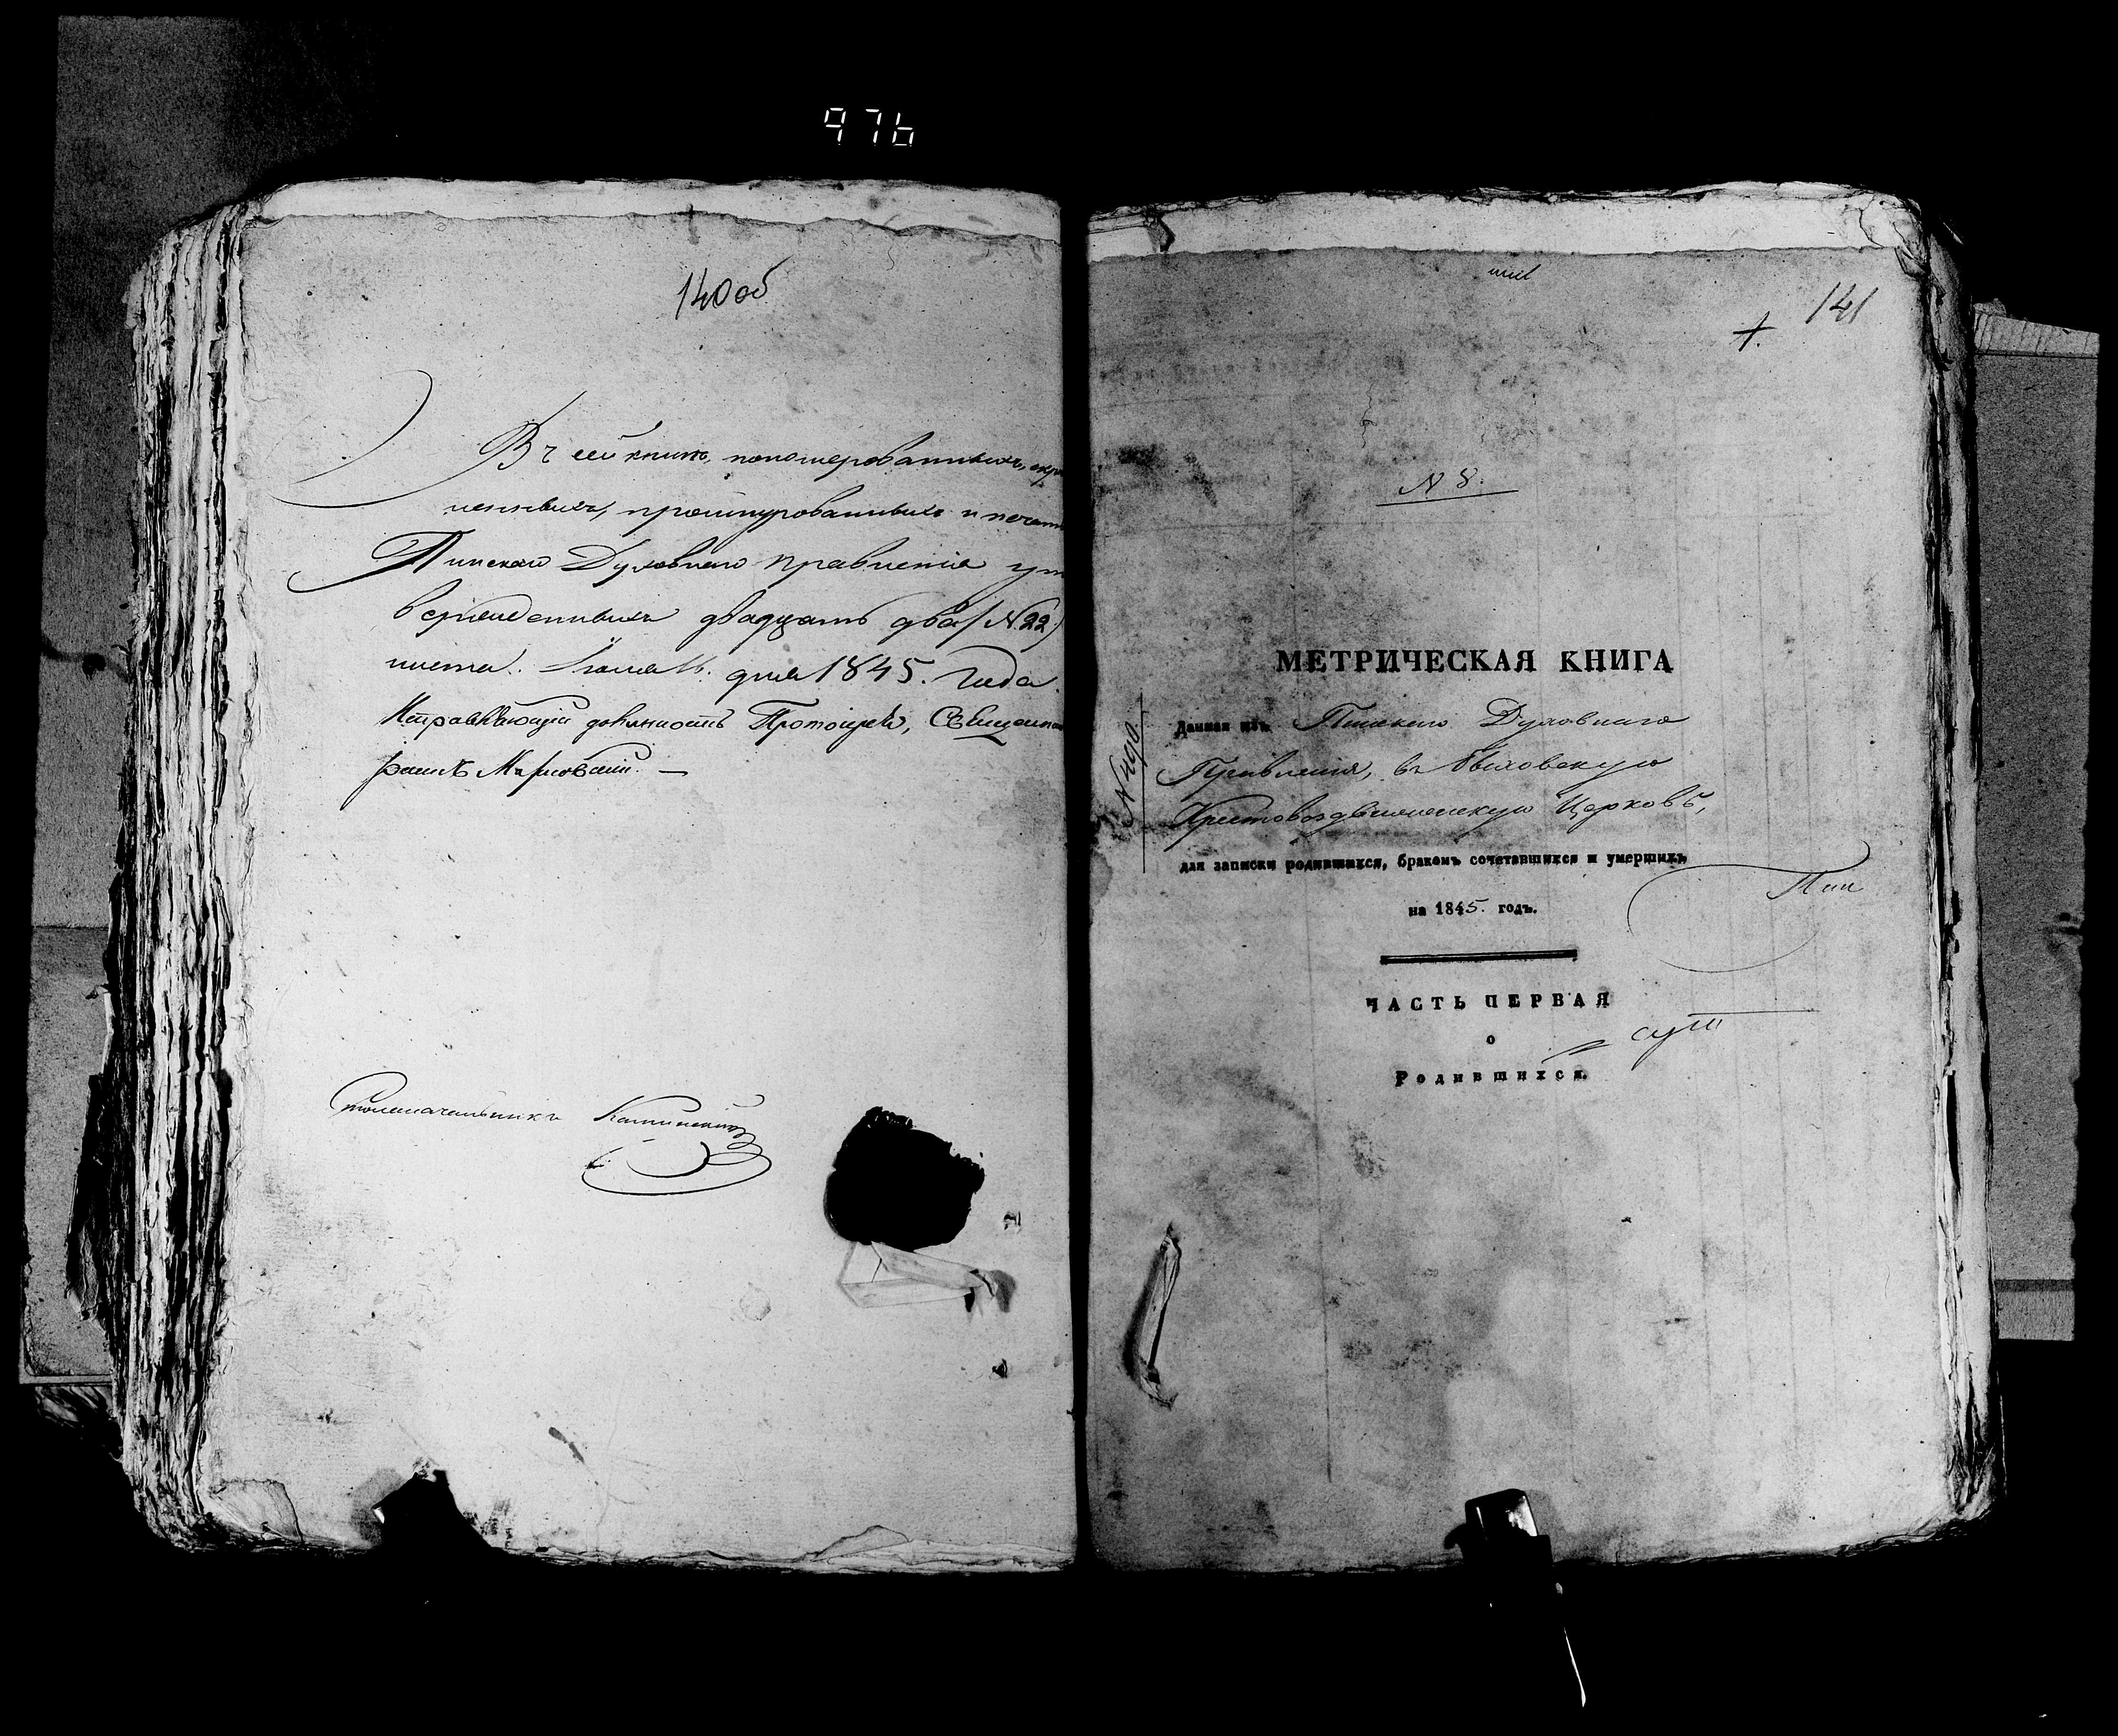 976
140об
Въ сей книгѣ, пономерованныхъ, скрѣ
пленныхъ, прошнурованныхъ и печатью
Пинскаго Духовнаго Правленія ут
вержденныхъ двадцать два (№ 22)
листа. дня 1845. Года.
Исправляющій должность Протоіерея, Священн
Столоначальникъ
141
№ 8.
МЕТРИЧЕСКАЯ КНИГА
Данная изъ Пинскаго Духовнаго
Правленія, въ Быховскую
Крестовоздвиженскую Церковь,
для записки родившихся, бракомъ сочетавшихся и умершихъ
на 1845. годъ.
Пин
ЧАСТЬ ПЕРВАЯ
о
Родившихся.
№ 490.